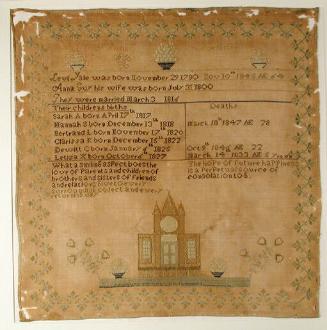 Levi Yale was born November 29 1790 Nov 10th 1845 AE 64
Anna his wife was born July 31 1800
They were married March 3 1816
Their childrens births
Deaths
Sarah A born April 17th 1817
Hannah S born December 13th 1818
March 18th 1847 AE 28
Bertrand L born November 17th 1820
Clarissa R born December 15th 1822
Dewitt C born January 4th 1825
Oct 9th 1846 AE 22
Letusa K born October 9th 1827
March 14th 1833 AE 5 Years
What a smiling aspect does the
love of Parents and children of
brothers and sisters of friends
and relations
surrounding object and every
The hope of Future happiness
is a Perpetual source of
consolation to